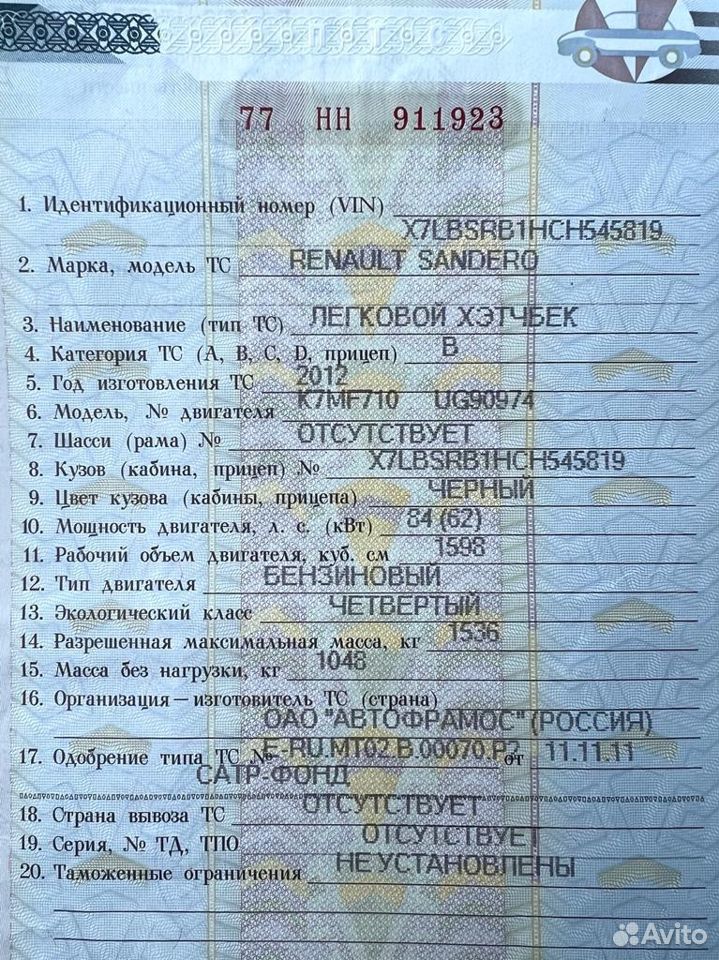 ПТС
77 НН 911923
1. Идентификационный номер (VIN)
X7LBSRB1HCH545819
2. Марка, модель ТС RENAULT SANDERO
3. Наименование (тип ТС) ЛЕГКОВОЙ ХЭТЧБЕК
4. Категория ТС (A, B, C, D, прицеп) B
5. Год изготовления ТС 2012
6. Модель, № двигателя K7MF710 UG90974
7. Шасси (рама) № ОТСУТСТВУЕТ
8. Кузов (кабина, прицеп) № X7LBSRB1HCH545819
9. Цвет кузова (кабины, прицепа) ЧЕРНЫЙ
10. Мощность двигателя, л. с. (кВт) 84 (62)
11. Рабочий объем двигателя, куб. см 1598
12. Тип двигателя БЕНЗИНОВЫЙ
13. Экологический класс ЧЕТВЕРТЫЙ
14. Разрешенная максимальная масса, кг 1536
15. Масса без нагрузки, кг 1048
16. Организация – изготовитель ТС (страна)
ОАО "АВТОФРАМОС" (РОССИЯ)
17. Одобрение типа ТС № E-RU.MT02.B.00070.P2 от 11.11.11
САТР-ФОНД
18. Страна вывоза ТС ОТСУТСТВУЕТ
19. Серия, № ТД, ТПО ОТСУТСТВУЕТ
20. Таможенные ограничения НЕ УСТАНОВЛЕНЫ
Avito